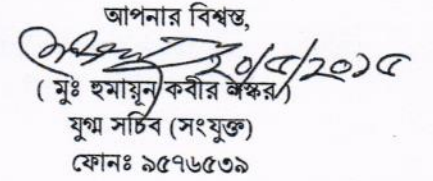 আপনার বিশ্বস্ত,
২০/৫/২০১৫
( মুঃ হুমায়ুন কবীর লস্কর)
যুগ্ম সচিব (সংযুক্ত)
ফোনঃ ৯৫৭৬৫৩৯